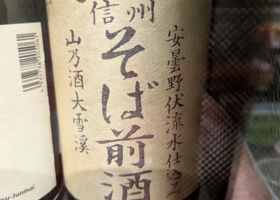 信州
安曇野伏流水仕込み
そば前酒
山乃酒大雪溪
zu-Junmai